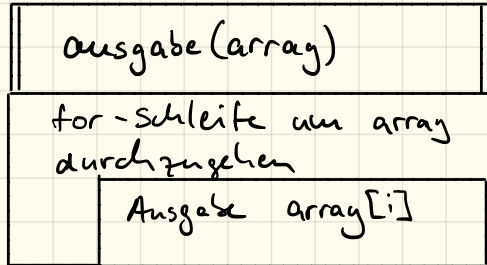 ausgabe(array)
for-Schleife um array
durchzugehen
Ausgabe array[i]